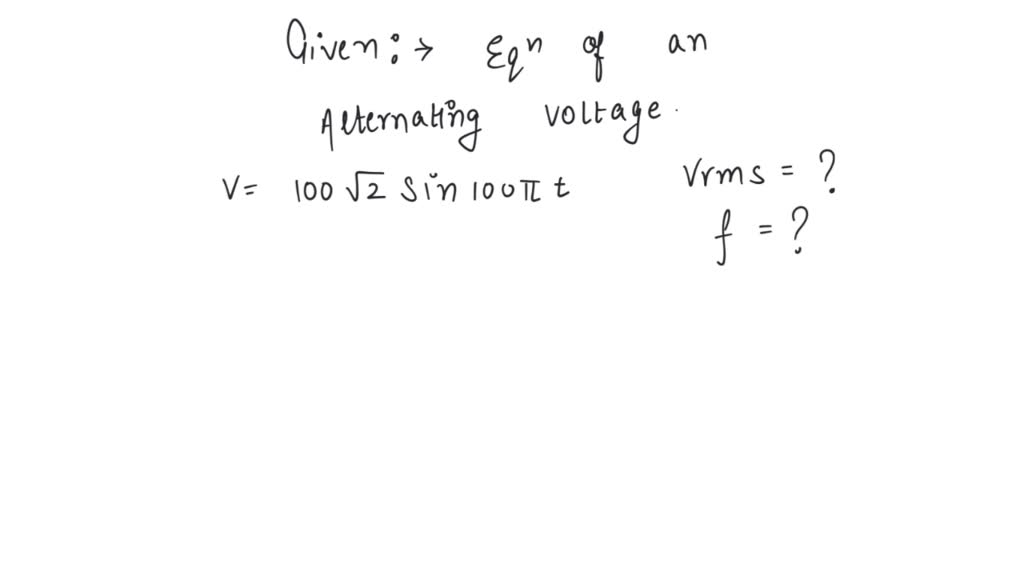 Given:→ Eqⁿ of an
Alternating voltage.
V= 100 √2 sin 100π t
Vrms = ?
f = ?